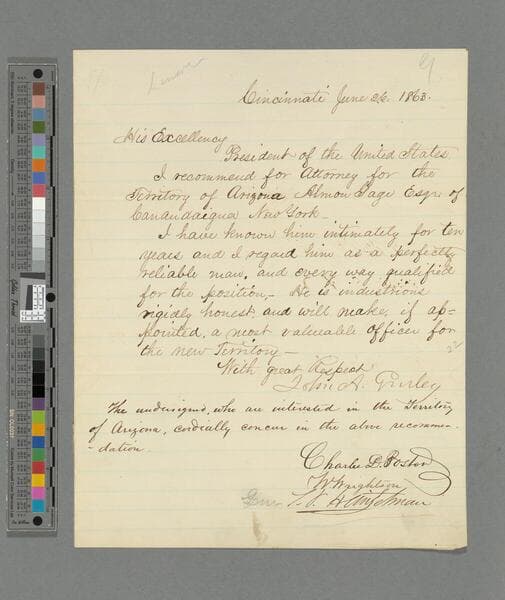 Cincinnati June 26. 1863.
His Excellency
President of the United States
I recommend for Attorney for the
Territory of Arizona Almon Gage Esqr of
Canandaigua New York—
I have known him intimately for ten
years and I regard him as a perfectly
reliable man, and every way qualified
for the position,— He is industrious
rigidly honest, and will make, if ap=
pointed, a most valuable officer for
the new Territory—
With great Respect
John A. Gurley
The undersigned, who are interested in the Territory
of Arizona, cordially concur in the above recommen-
-dation.
Charles D. Poston
W. Wrightson
S. P. Heintzelman